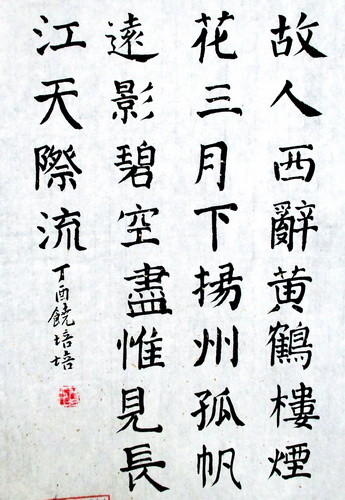 故人西辭黄鶴樓煙
花三月下揚州孤帆
遠影碧空盡惟見長
江天際流
丁酉饒培培